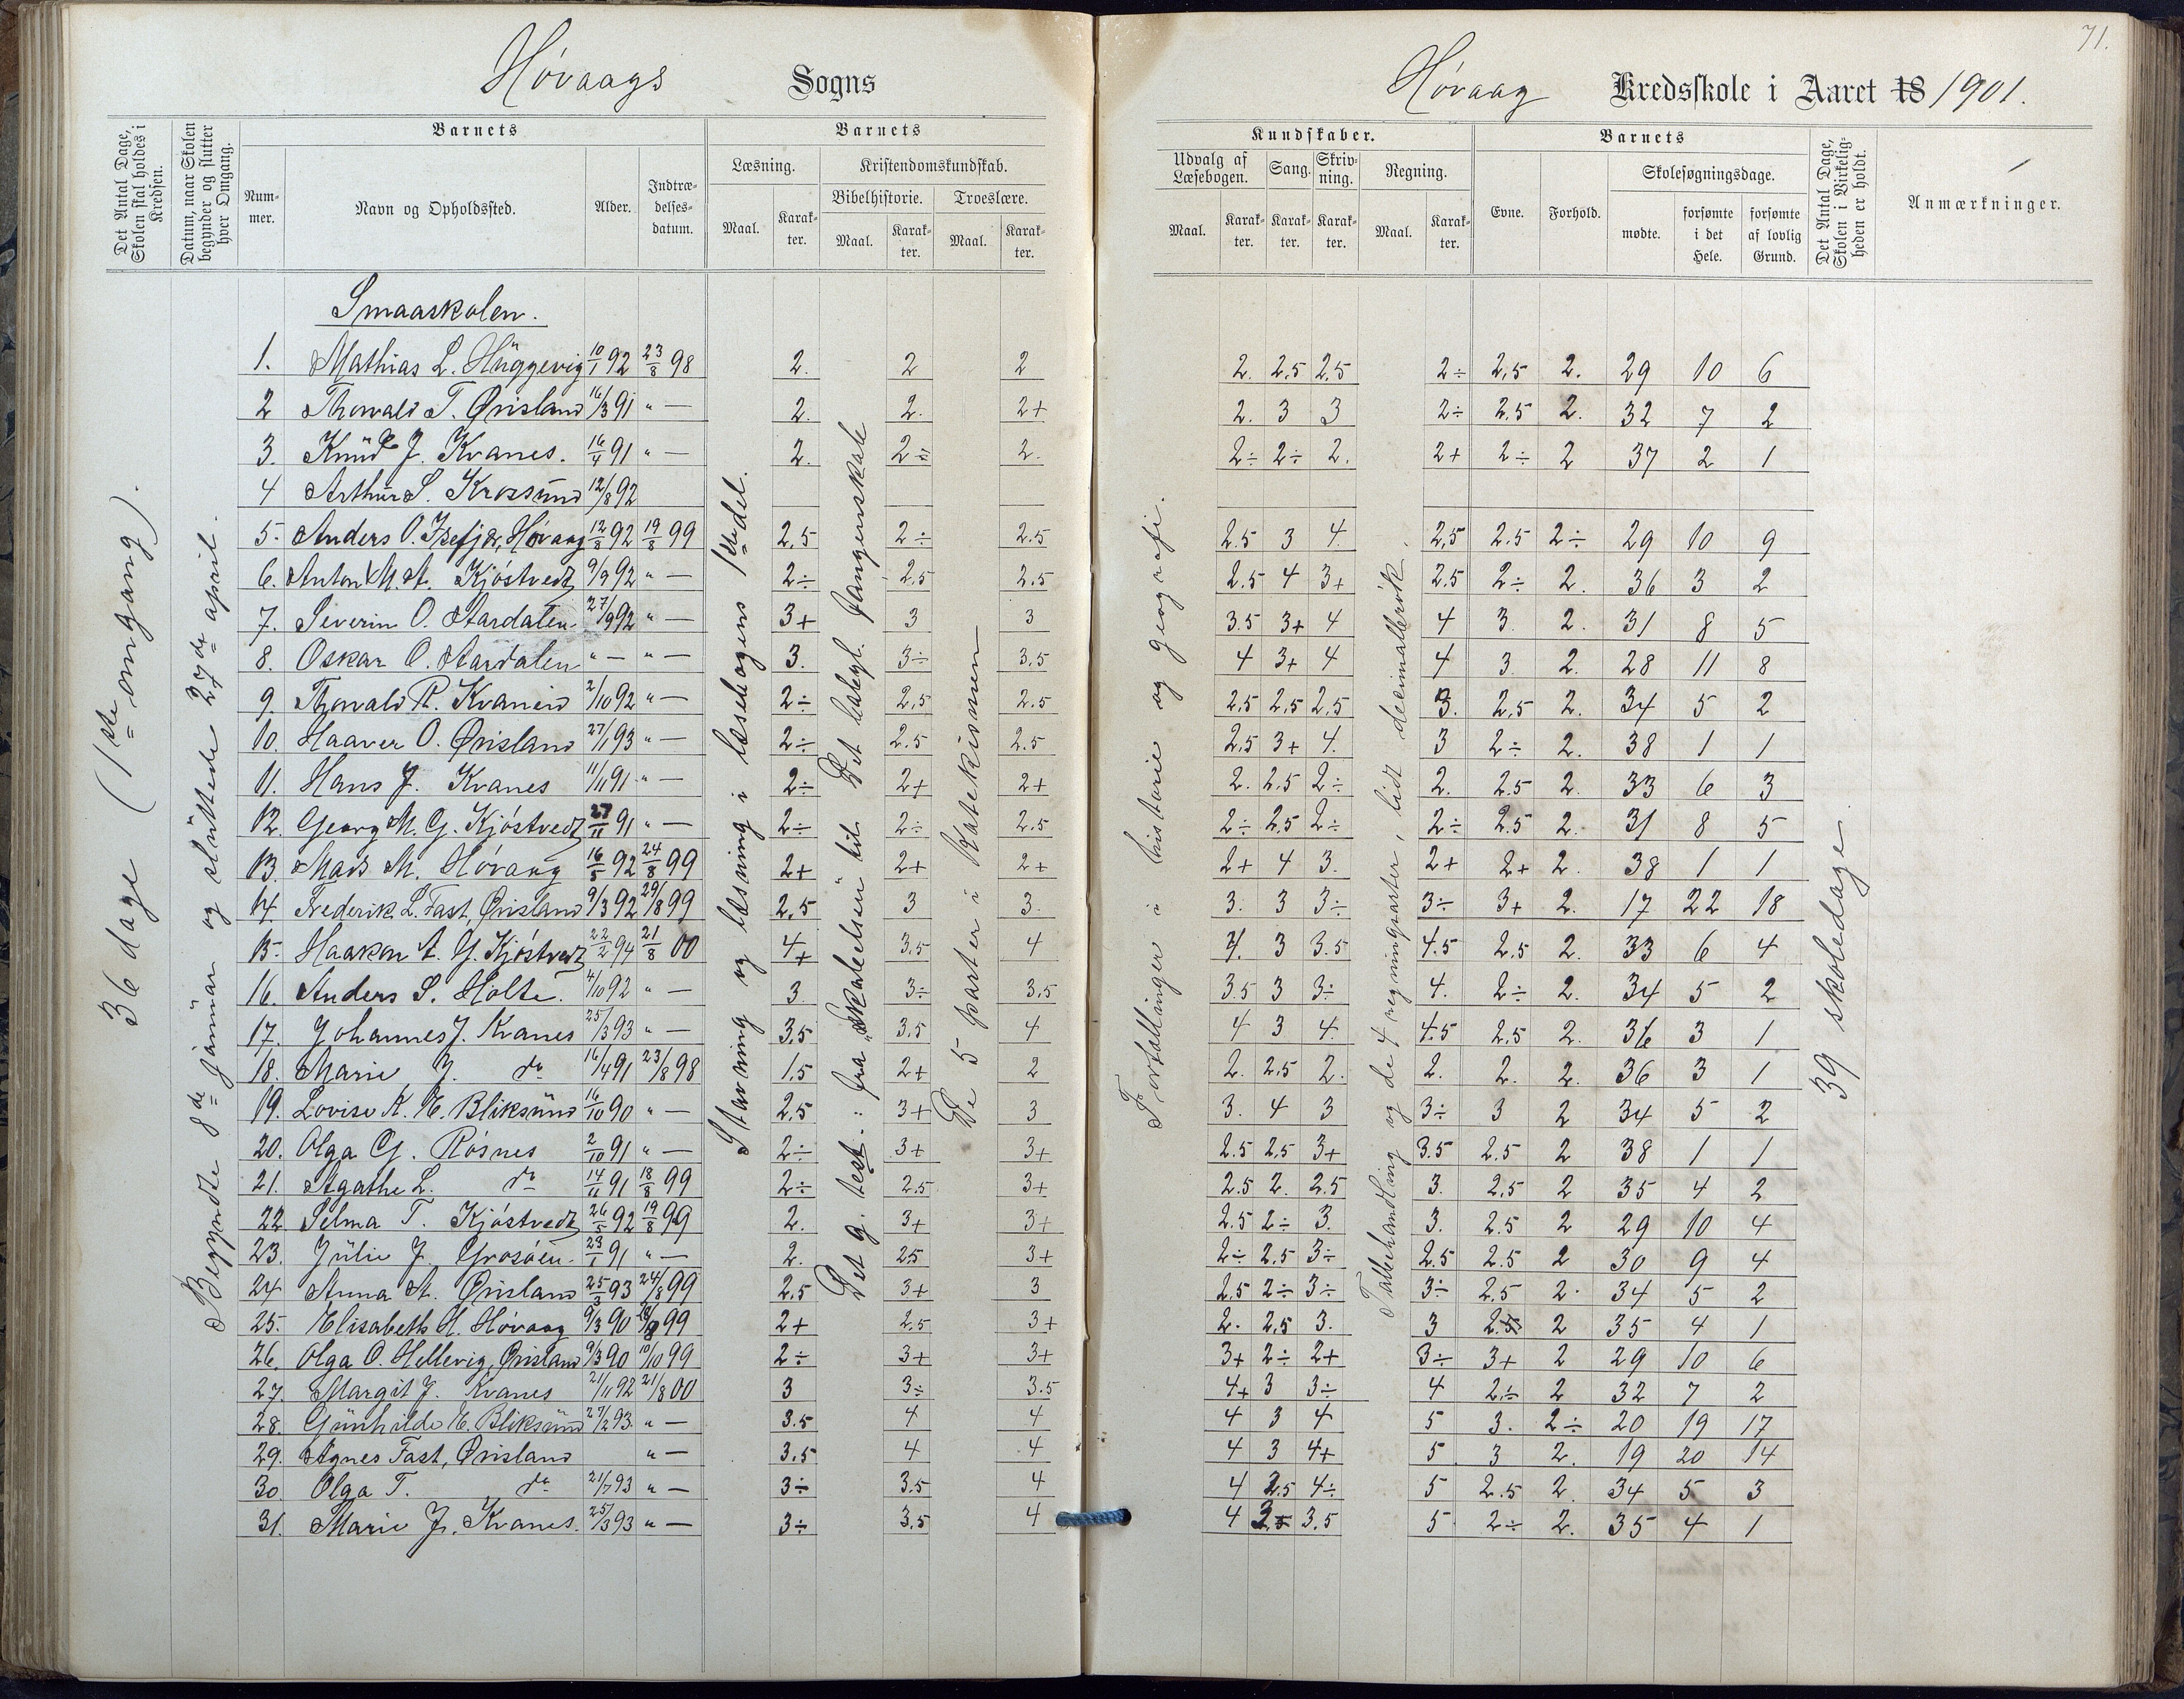 71.
Høvaags Sogns
Høvaag Kredsskole i Aaret 18 1901.
Det Antal Dage, Skolen skal holdes i Kredsen.
Datum, naar Skolen begynder og slutter hver Omgang.
Barnets
Nummer.
Navn og Opholdssted.
Alder.
Indtrædelses-datum.
Barnets
Læsning.
Maal.
Karakter.
Kristendomskundskab.
Bibelhistorie.
Maal.
Karakter.
Troeslære.
Maal.
Karakter.
Kundskaber.
Udvalg af Læsebogen.
Maal.
Karakter.
Sang.
Karakter.
Skrivning.
Karakter.
Regning.
Maal.
Karakter.
Barnets
Evne.
Forhold.
Skolesøgningsdage.
mødte.
forsømte i det Hele.
forsømte af lovlig Grund.
Det Antal Dage, Skolen i Virkeligheden er holdt.
Anmærkninger.
36 dage (1ste omgang).
Begyndte 8de januar og sluttede 27de april.
Stavning og læsning i læsebogens 1ste del.
Det g. test.: fra "Skabelsen" til Det babyl. fangenskab
De 5 parter i Katekismen
Fortællinger i historie og geografi.
Talbehandling og de 4 regningsarter, lidt decimalbrøk.
39 skoledage
Smaaskolen.
1. Mathias L. Hüggevig 10/1 92 23/8 98 2. 2 2 2. 2.5 2.5 2÷ 2,5 2. 29 10 6
2 Thorvald T. Ørisland 16/3 91 " — 2. 2. 2+ 2. 3 3 2÷ 2.5 2. 32 7 2
3. Knud J. Kvanes. 16/4 91 " — 2. 2÷ 2. 2÷ 2÷ 2. 2+ 2÷ 2 37 2 1
4 Arthur S. Krossund 12/8 92
5. Anders O. Isefjær, Høvaag 12/8 92 19/8 99 2,5 2÷ 2.5 2.5 3 4. 2,5 2.5 2÷ 29 10 9
6. Anton M. A. Kjøstvedt 9/9 92 " — 2÷ 2.5 2.5 2.5 4 3+ 2.5 2÷ 2. 36 3 2
7. Severin O. Aardalen 27/9 92 " — 3+ 3 3 3.5 3+ 4 4 3. 2. 31 8 5
8. Oskar O. Aardalen " — " — 3. 3÷ 3.5 4 3+ 4 4 3. 2. 28 11 8
9. Thorvald R. Kvanes 2/10 92 " — 2÷ 2,5 2.5 2,5 2,5 2,5 3. 2,5 2. 34 5 2
10. Haaver O. Ørisland 27/1 93 " — 2÷ 2.5 2.5 2.5 3+ 4. 3 2÷ 2. 38 1 1
11. Hans J. Kvanes 11/11 91 " — 2÷ 2+ 2+ 2. 2.5 2÷ 2. 2.5 2. 33 6 3
12. Georg M. G. Kjøstvedt 27/11 91 " — 2÷ 2÷ 2.5 2÷ 2.5 2÷ 2÷ 2.5 2. 31 8 5
13. Mads M. Høvaag 16/5 92 24/8 99 2+ 2+ 2+ 2+ 4 3. 2+ 2+ 2. 38 1 1
14. Frederik L. Fast, Ørisland 9/3 92 29/8 99 2,5 3 3. 3. 3 3÷ 3÷ 3+ 2. 17 22 18
15. Haakon A. G. Kjøstvedt 22/2 94 21/8 00 4+ 3.5 4 4. 3 3.5 4.5 2.5 2. 33 6 4
16. Anders S. Holte. 4/10 92 " — 3 3÷ 3.5 3.5 3 3÷ 4. 2÷ 2. 34 5 2
17. Johannes J. Kvanes 25/3 93 " — 3,5 3.5 4 4 3 4. 4.5 2,5 2. 36 3 1
18. Marie J. do 16/4 91 23/8 98 1,5 2+ 2 2. 2,5 2. 2. 2. 2. 36 3 1
19. Lovise K. E. Bliksund 16/10 90 " — 2,5 3+ 3 3. 4 3 3÷ 3 2 34 5 2
20. Olga G. Røsnes 2/10 91 " — 2÷ 3+ 3+ 2.5 2,5 3+ 3.5 2.5 2 38 1 1
21. Agathe L. do 14/11 91 18/8 99 2÷ 2.5 3+ 2.5 2. 2.5 3. 2,5 2 35 4 2
22. Selma T. Kjøstvedt 26/5 92 19/8 99 2. 3+ 3+ 2.5 2÷ 3. 3. 2.5 2 29 10 4
23. Julie J. Grosøen. 23/1 91 " — 2. 2.5 3+ 2÷ 2.5 3÷ 2.5 2.5 2 30 9 4
24 Anna A. Ørisland 25/3 93 24/8 99 2,5 3+ 3 2,5 2÷ 3÷ 3÷ 2.5 2. 34 5 2
25. Elisabeth H. Høvaag 9/3 90 99 2+ 2.5 3+ 2. 2,5 3. 3 2.5 2 35 4 1
26. Olga O. Hellevig, Ørisland 9/3 90 10/10 99 2÷ 3+ 3+ 3+ 2÷ 2+ 3÷ 3+ 2 29 10 6
27. Margit J. Kvanes 21/11 92 21/8 00 3 3÷ 3.5 4+ 3 3÷ 4 2÷ 2 32 7 2
28. Gunhilde E. Bliksund 27/2 93. " — 3.5 4 4 4 3 4 5 3. 2÷ 20 19 17
29. Agnes Fast, Ørisland " — 3,5 4 4 4 3 4+ 5 3 2. 19 20 14
30. Olga T. do 21/7 93 " — 3÷ 3.5 4 4 2.5 4÷ 5 2.5 2. 34 5 3
31. Marie J. Kvanes. 25/3 93 " — 3÷ 3.5 4 4 3.5 5 2÷ 2. 35 4 1